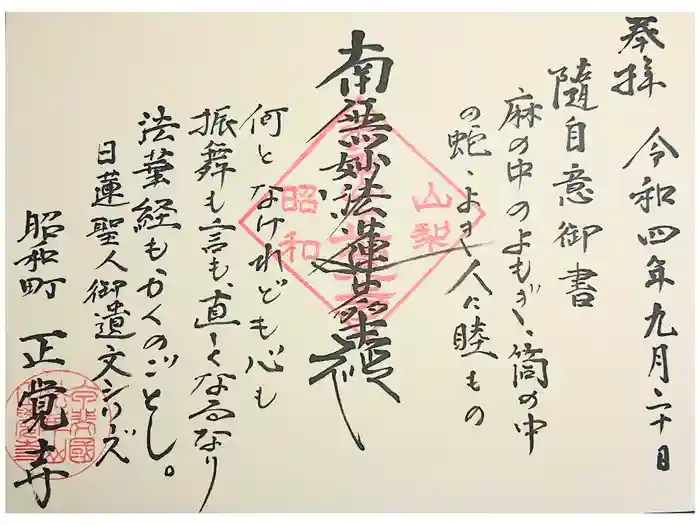 奉拝 令和四年九月二十日
隨自意御書
麻の中のよもぎ、筒の中
の蛇、よき人に睦もの
南無妙法蓮華経
山梨
昭和
何となけれども心も
振舞も言も、直しくなるなり
法華経もかくのごとし。
日蓮聖人御遺文シリーズ
昭和町 正覚寺